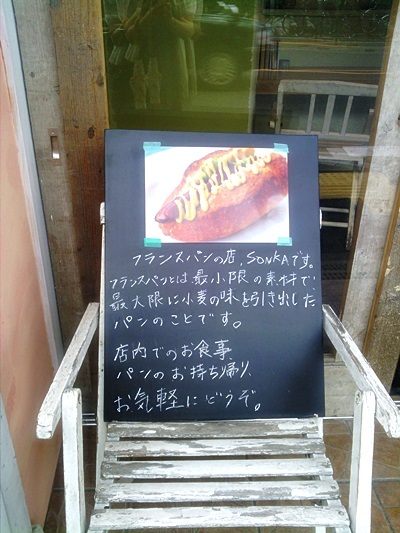 フランスパンの店、SONKAです。
フランスパンとは最小限の素材で、
最大限に小麦の味を引き出した
パンのことです。
店内でのお食事
パンのお持ち帰り、
お気軽にどうぞ。